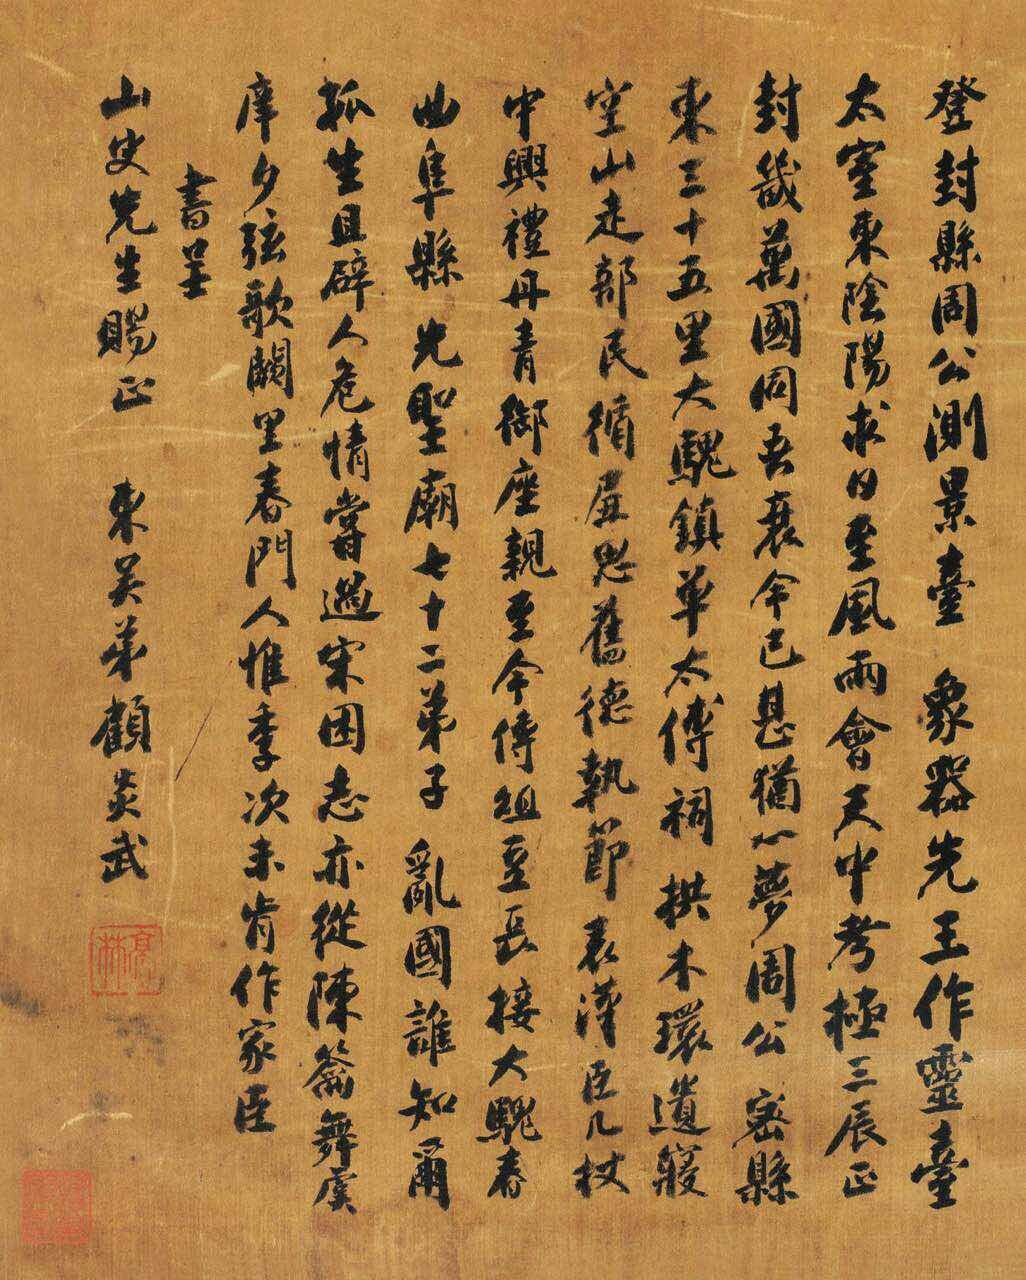 登封縣周公測景臺 象器先王作靈臺
太室東陰陽求日至風雨會天中考極三辰正
封畿萬國同吾衰今已甚猶一夢周公密縣
東三十五里大騩鎮卓太傅祠拱木環遺寢
空山走部民循良思舊德執節表漢臣几杖
中興禮丹青御座親至今傳俎豆長接大騩春
曲阜縣先聖廟七十二弟子亂國誰知爾
孤生且辟人危情嘗過宋困志亦從陳籥舞虞
庠夕弦歌闕里春門人惟季次未肯作家臣
書呈
山史先生賜正 東吴弟顧炎武
亭林